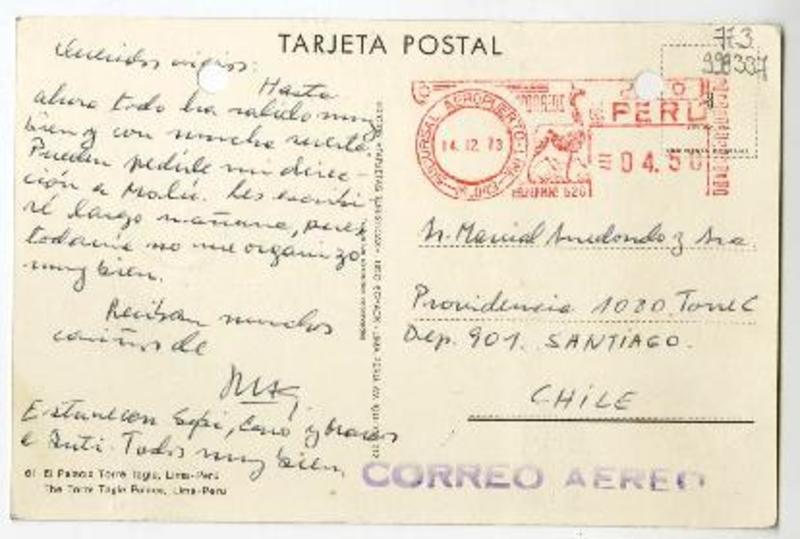 TARJETA POSTAL
773
998337
Queridos viejos:
Hasta
ahora todo ha salido muy
bien y con mucha suerte.
Pueden pedirle mi direc-
ción a Malú. Les escribi
ré largo mañana, pues
todavía no me organizo
muy bien.
Reciban muchos
cariños de
Estuve con Pepi, y
e Inti. Todos muy bien.
61 El Palacio Torre Tagle, Lima-Perú
The Torre Tagle Palace, Lima-Peru
SUCURSAL AEROPUERTO
14.12.73
PERU
04.50
Sr. Marcial Arredondo y Sra.
Providencia 1080 Torre C
Dep. 901. SANTIAGO.
CHILE
CORREO AEREO